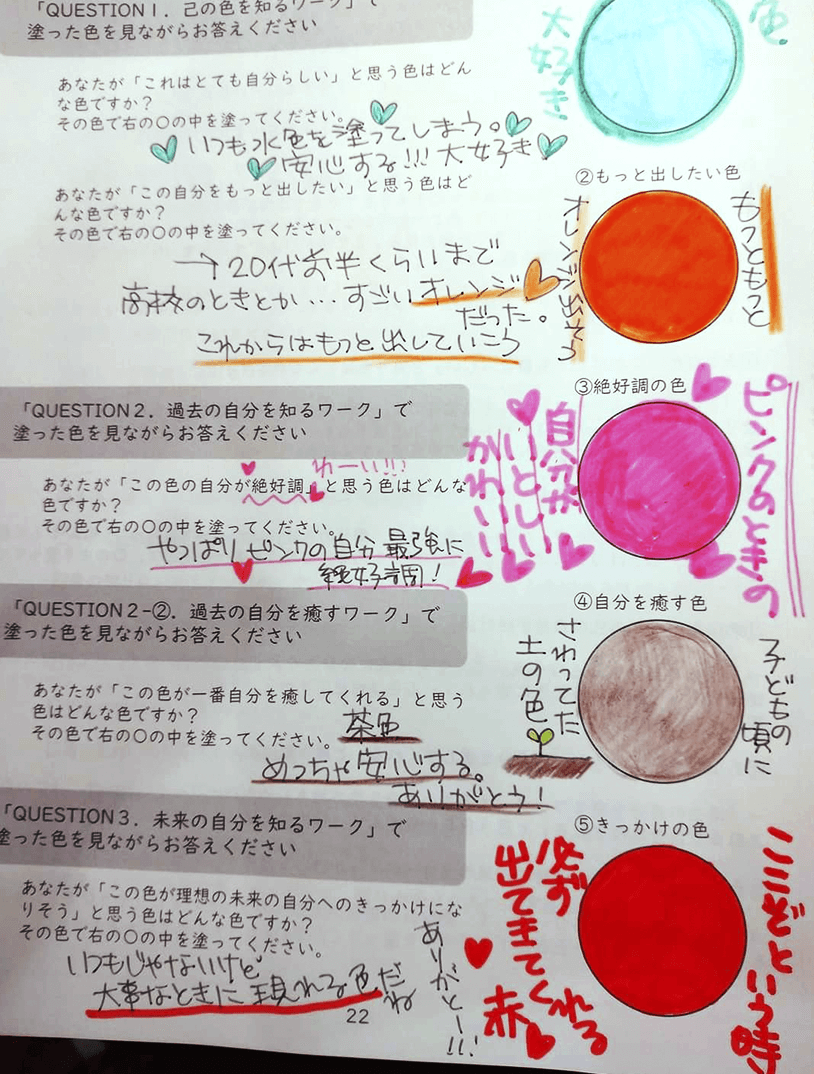 「QUESTION１．己の色を知るワーク」で
塗った色を見ながらお答えください
色
大好き
あなたが「これはとても自分らしい」と思う色はどん
な色ですか？
その色で右の〇の中を塗ってください。
いつも水色を塗ってしまう。
安心する!!! 大好き
あなたが「この自分をもっと出したい」と思う色はど
んな色ですか？
その色で右の〇の中を塗ってください。
→20代前半くらいまで
高校のときとか…すごいオレンジ
だった。
これからはもっと出していこう
②もっと出したい色
もっともっと
オレンジ出そう
「QUESTION２．過去の自分を知るワーク」で
塗った色を見ながらお答えください
わーい!!!
あなたが「この色の自分が絶好調」と思う色はどんな
色ですか？
その色で右の〇の中を塗ってください。
やっぱりピンクの自分 最強に
絶好調！
③絶好調の色
ピンクのときの
自分が
いとしい
かわいい
「QUESTION２−②．過去の自分を癒すワーク」で
塗った色を見ながらお答えください
あなたが「この色が一番自分を癒してくれる」と思う
色はどんな色ですか？
その色で右の〇の中を塗ってください。
茶色
めっちゃ安心する。
ありがとう！
④自分を癒す色
子どもの
頃に
さわってた
土の色
「QUESTION３．未来の自分を知るワーク」で
塗った色を見ながらお答えください
あなたが「この色が理想の未来の自分へのきっかけにな
りそう」と思う色はどんな色ですか？
その色で右の〇の中を塗ってください。
いつもじゃないけど
大事なときに現れる色だね
ありがとー!!!
⑤きっかけの色
ここぞという時
必ず
出てきてくれる
赤
22